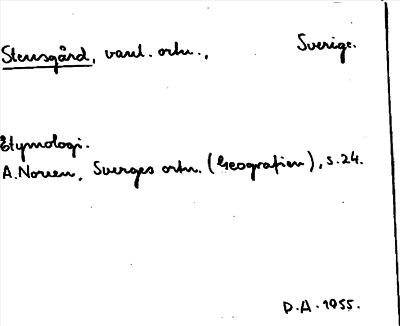 Stensgård, vanl. ortn., Sverige.
Etymologi.
A. Noreen, Sveriges ortn. (Geografien), s. 24.
D.A. 1955.